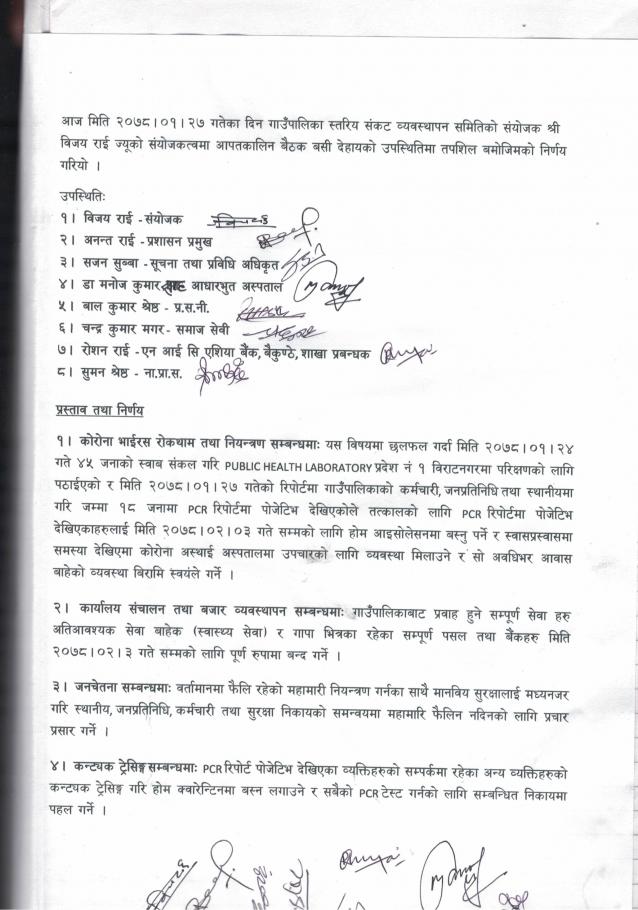 आज मिति २०७८।०१।२७ गतेका दिन गाउँपालिका स्तरिय संकट व्यवस्थापन समितिको संयोजक श्री
विजय राई ज्यूको संयोजकत्वमा आपतकालिन बैठक बसी देहायको उपस्थितिमा तपशिल बमोजिमको निर्णय
गरियो ।
उपस्थितिः
१। विजय राई -संयोजक
२। अनन्त राई -प्रशासन प्रमुख
३। सजन सुब्बा -सूचना तथा प्रविधि अधिकृत
४। डा मनोज कुमार आधारभुत अस्पताल
५। बाल कुमार श्रेष्ठ - प्र.स.नी.
६। चन्द्र कुमार मगर- समाज सेवी
७। रोशन राई -एन आई सि एशिया बैंक, बैकुण्ठे, शाखा प्रबन्धक
८। सुमन श्रेष्ठ - ना.प्रा.स.
प्रस्ताव तथा निर्णय
१। कोरोना भाईरस रोकथाम तथा नियन्त्रण सम्बन्धमाः यस विषयमा छलफल गर्दा मिति २०७८।०१।२४
गते ४५ जनाको स्वाब संकल गरि PUBLIC HEALTH LABORATORY प्रदेश नं १ विराटनगरमा परिक्षणको लागि
पठाईएको र मिति २०७८।०१।२७ गतेको रिपोर्टमा गाउँपालिकाको कर्मचारी, जनप्रतिनिधि तथा स्थानीयमा
गरि जम्मा १८ जनामा PCR रिपोर्टमा पोजेटिभ देखिएकोले तत्कालको लागि PCR रिपोर्टमा पोजेटिभ
देखिएकाहरुलाई मिति २०७८।०२।०३ गते सम्मको लागि होम आइसोलेसनमा बस्नु पर्ने र स्वासप्रस्वासमा
समस्या देखिएमा कोरोना अस्थाई अस्पतालमा उपचारको लागि व्यवस्था मिलाउने र सो अवधिभर आवास
बाहेको व्यवस्था बिरामि स्वयंले गर्ने ।
२। कार्यालय संचालन तथा बजार व्यवस्थापन सम्बन्धमाः गाउँपालिकाबाट प्रवाह हुने सम्पूर्ण सेवा हरु
अतिआवश्यक सेवा बाहेक (स्वास्थ्य सेवा) र गापा भित्रका रहेका सम्पूर्ण पसल तथा बैंकहरु मिति
२०७८।०२।३ गते सम्मको लागि पूर्ण रुपामा बन्द गर्ने ।
३। जनचेतना सम्बन्धमाः वर्तामानमा फैलि रहेको महामारी नियन्त्रण गर्नका साथै मानविय सुरक्षालाई मध्यनजर
गरि स्थानीय, जनप्रतिनिधि, कर्मचारी तथा सुरक्षा निकायको समन्वयमा महामारि फैलिन नदिनको लागि प्रचार
प्रसार गर्ने ।
४। कन्ट्याक ट्रेसिङ्ग सम्बन्धमाः PCR रिपोर्ट पोजेटिभ देखिएका व्यक्तिहरुको सम्पर्कमा रहेका अन्य व्यक्तिहरुको
कन्ट्याक ट्रेसिङ्ग गरि होम क्वारेन्टिनमा बस्न लगाउने र सबैको PCR टेस्ट गर्नको लागि सम्बन्धित निकायमा
पहल गर्ने ।